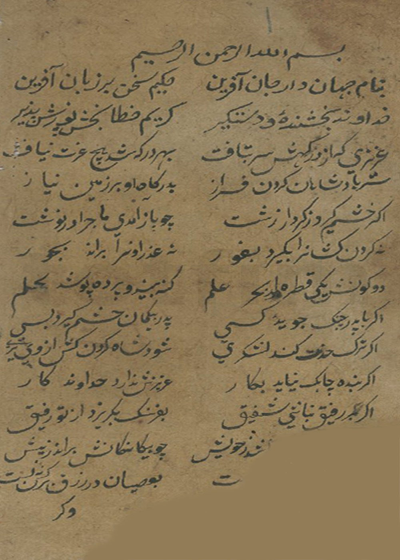 بسم الله الرحمن الرحیم
بنام جهان دار جان آفرین حکیم سخن بر زبان آفرین
خداوند بخشنده و دستگیر کریم خطا بخش پوزش پذیر
عزیزی که از درگهش سر بتافت بهر در که شد هیچ عزت نیافت
سر پادشاهان گردن فراز بدرگاه او بر زمین نیاز
اگر خشم گیرد ز کردار زشت چو باز آمدی ماجرا در نوشت
نه گردن کشانرا بگیرد بفور نه عذر اورانرا براند بجور
دو کونش یکی قطره در بحر علم گنه بیند و پرده پوشد بحلم
اگر با پدر جنگ جوید کسی پدر بیگمان خشم گیرد بسی
اگر ترک خدمت کند لشکری شود شاه گردن کش از وی بری
اگر بنده چابک نیاید بکار عزیزش ندارد خداوند کار
اگر بر رفیق نباشی شفیق بفرسنگ بگریزد از تو رفیق
شد ز خویش چو بیگانگانش براند ز پیش
ت بعصیان در رزق بر کس نبست
وگر